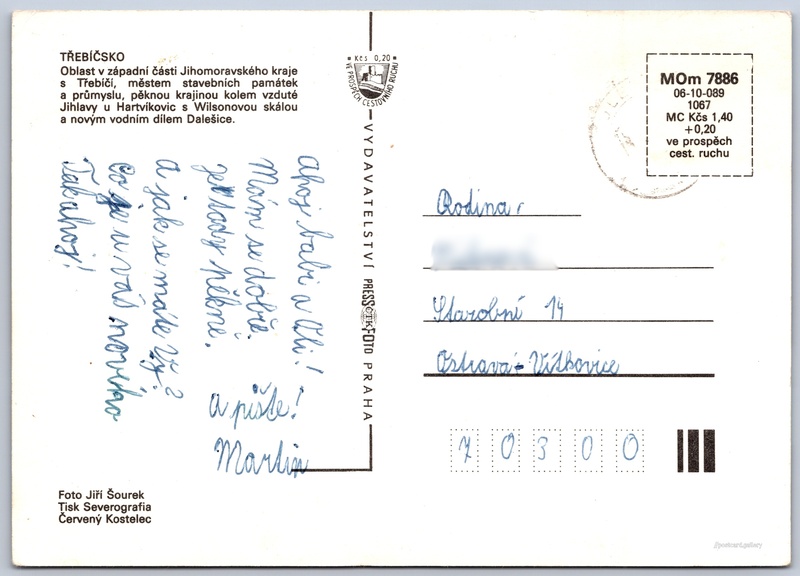 TŘEBÍČSKO
Oblast v západní části Jihomoravského kraje
s Třebíčí, městem stavebních památek
a průmyslu, pěknou krajinou kolem vzduté
Jihlavy u Hartvíkovic s Wilsonovou skálou
a novým vodním dílem Dalešice.
Kčs 0,20
VE PROSPĚCH CESTOVNÍHO RUCHU
VYDAVATELSTVÍ PRESSFOTO PRAHA
ČTK
MOm 7886
06-10-089
1067
MC Kčs 1,40
+0,20
ve prospěch
cest. ruchu
Ahoj babi a Oli!
Mám se dobře.
Je tady pěkně.
A jak se máte vy?
Co je u vás nového
Tak ahoj!
A pište!
Martin
Rodina
Starobní 14
Ostrava - Vítkovice
70300
Foto Jiří Šourek
Tisk Severografia
Červený Kostelec
//postcard.gallery